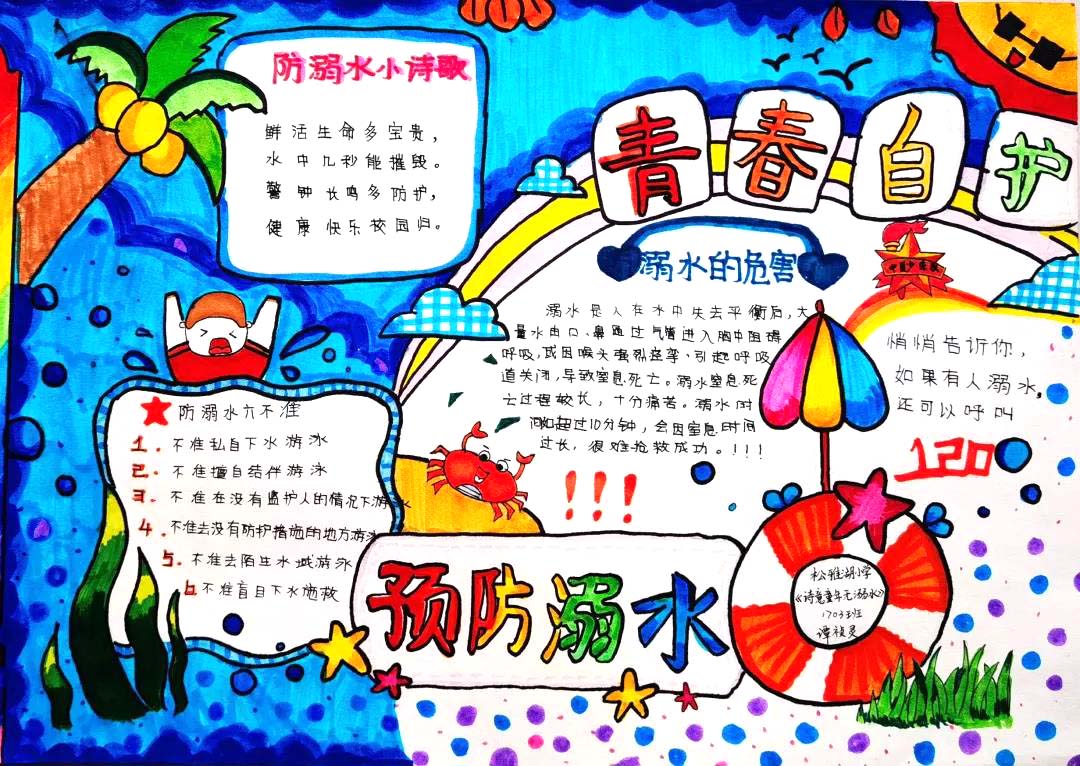 防溺水小诗歌
鲜活生命多宝贵，
水中几秒能摧毁。
警钟长鸣多防护，
健康快乐校园归。
青春自护
溺水的危害
溺水是人在水中失去平衡后，大
量水由口、鼻通过气管进入胸中阻碍
呼吸，或因喉头强烈痉挛，引起呼吸
道关闭，导致窒息死亡。溺水窒息死
亡过程较长，十分痛苦。溺水时
间如超过10分钟，会因窒息时间
过长，很难抢救成功。！！！
!!!
悄悄告诉你，
如果有人溺水，
还可以呼叫
120
防溺水六不准
1.不准私自下水游泳
2.不准擅自结伴游泳
3.不准在没有监护人的情况下游泳
4.不准去没有防护措施的地方游泳
5.不准去陌生水域游泳
6不准盲目下水施救
预防溺水
松雅湖小学
《诗意童年无溺水》
1703班